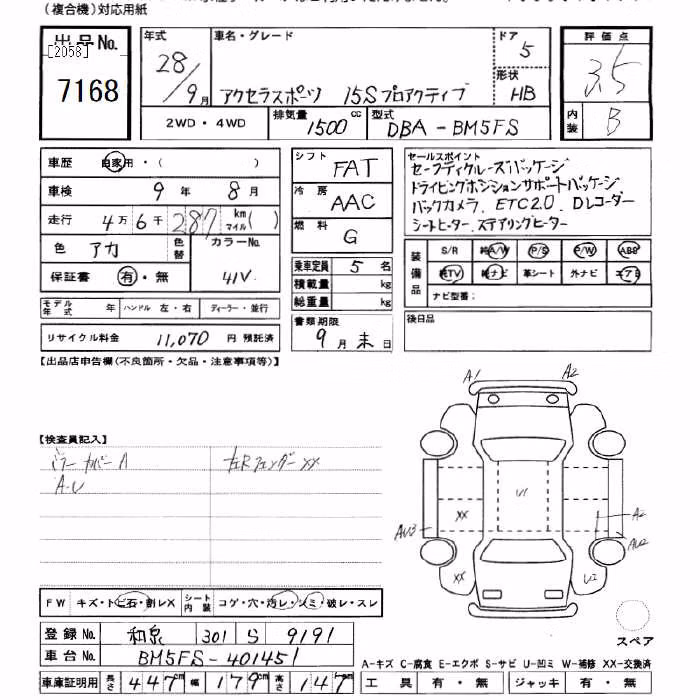 (複合機)対応用紙
出品No.
[2058]
7168
年式
28/9月
車名・グレード
アクセラスポーツ 15Sプロアクティブ
ドア
5
形状
HB
2WD・4WD
排気量
1500cc
型式
DBA-BM5FS
評価点
3.5
内装
B
車歴 自家用・( )
車検 9年 8月
走行 4万6千287 km マイル( )
色 アカ 色替 カラーNo.
41V
保証書 有・無
モデル年式 年 ハンドル 左・右 ディーラー・並行
リサイクル料金 11,070 円 預託済
シフト FAT
冷房 AAC
燃料 G
乗車定員 5名
積載量 kg
総重量 kg
書類期限
9月末日
セールスポイント
セーフティクルーズパッケージ
ドライビングポジションサポートパッケージ
バックカメラ、ETC2.0、Dレコーダー
シートヒーター、ステアリングヒーター
装備品
S/R 純A/W P/S P/W ABS
純TV 純ナビ 革シート 外ナビ エアB
ナビ型番:
後日品
【出品店申告欄(不良箇所・欠品・注意事項等)】
【検査員記入】
ミラーカバーA 左Rフェンダー XX
A・U
A1 A2
U1
XX
AU3
A2
AU2
XX
U1
スペア
FW キズ・トビ石・割レX シート内装 コゲ・穴・汚レ・シミ・破レ・スレ
登録No. 和泉 301 S 9191
車台No. BM5FS-401451
車庫証明用 長さ 447cm 幅 179cm 高さ 147cm
A-キズ C-腐食 E-エクボ S-サビ U-凹ミ W-補修 XX-交換済
工具 有・無 ジャッキ 有・無